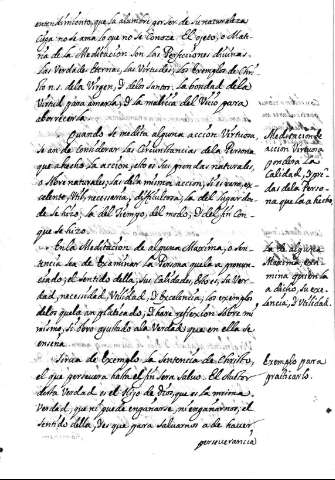 entendimiento, que la alumbre por ser de su naturaleza
Ciega no se ama lo que no se Conoze. El ojeto, o Mat=
ria de la Meditacion son las Perfecciones divinas
Las Verdades Eternas, las Virtudes, los Exemplos de Chris
to n. s. de la Virgen, y de los Santos. La bondad de la
Virtud para amarla, y la malicia del Vicio para
aborrecerla.
Quando se medita alguna acción Virtuosa,
se an de considerar las Circunstancias de la Persona
que abecho la acción, esto es sus prendas naturales,
o Sobre naturales; las de la misma acción, si es rara, ex=
celente, Util, necessaria, dificultosa; la del lugar don=
de se hizo, la del Tiempo, del modo, y del fin Con=
que se hizo.
En la Meditacion de alguna Maxima, o Sen=
tencia se a de Examinar la Persona que la a pronun=
ciado, el sentido della, sus Calidades, Esto es, su Ver=
dad, necessidad, Utilidad, y Excelencia; los exemplos
de los que la an platicado, y hare reflexion sobre mi
mismo, si devo ajustado a la Verdad que en ella se
enseña.
Sirva de Exemplo la Sentencia de Christo,
el que persevera hasta el fin sera Salvo. El Author
desta Verdad es el Hijo de Dios, que es la misma
Verdad, que ni puede engañarse, ni engañarnos; el
sentido della, Des que para salvarnos a de haver
perseverancia
Meditacion de
acción Virtuosa,
pondera la
Calidad, y pren=
das de la Perso=
na que la a hecho.
La de alguna
Maxima, Exa=
mina quien la
a dicho, su exe=
lencia, y Utilidad.
Exemplo para
practicarlo.